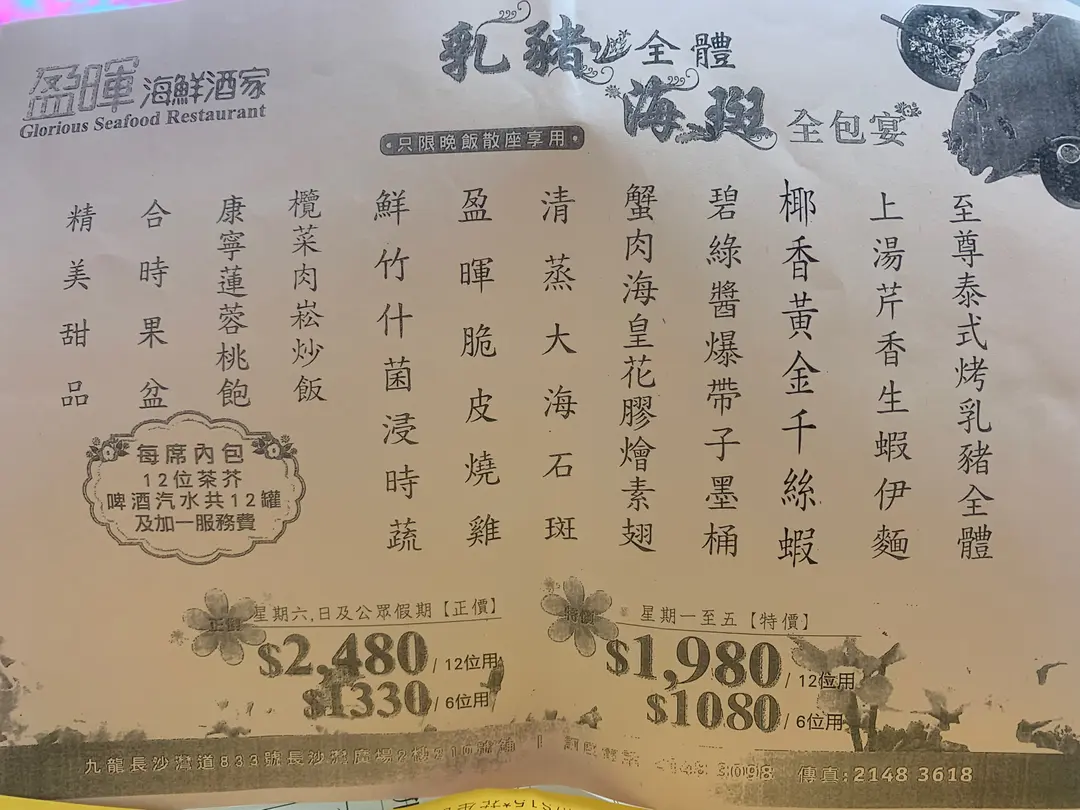 盈暉海鮮酒家
Glorious Seafood Restaurant
乳豬全體
海斑全包宴
只限晚飯散座享用
至尊泰式烤乳豬全體
上湯芹香生蝦伊麵
椰香黃金千絲蝦
碧綠醬爆帶子墨桶
蟹肉海皇花膠燴素翅
清蒸大海石斑
盈暉脆皮燒雞
鮮竹什菌浸時蔬
欖菜肉崧炒飯
康寧蓮蓉桃飽
合時果盆
精美甜品
每席內包
12位茶芥
啤酒汽水共12罐
及加一服務費
正價
星期六,日及公眾假期【正價】
$2,480/12位用
$1330/6位用
特價
星期一至五【特價】
$1,980/12位用
$1080/6位用
九龍長沙灣道833號長沙灣廣場2樓210號舖 | 2148 3098 傳真:2148 3618